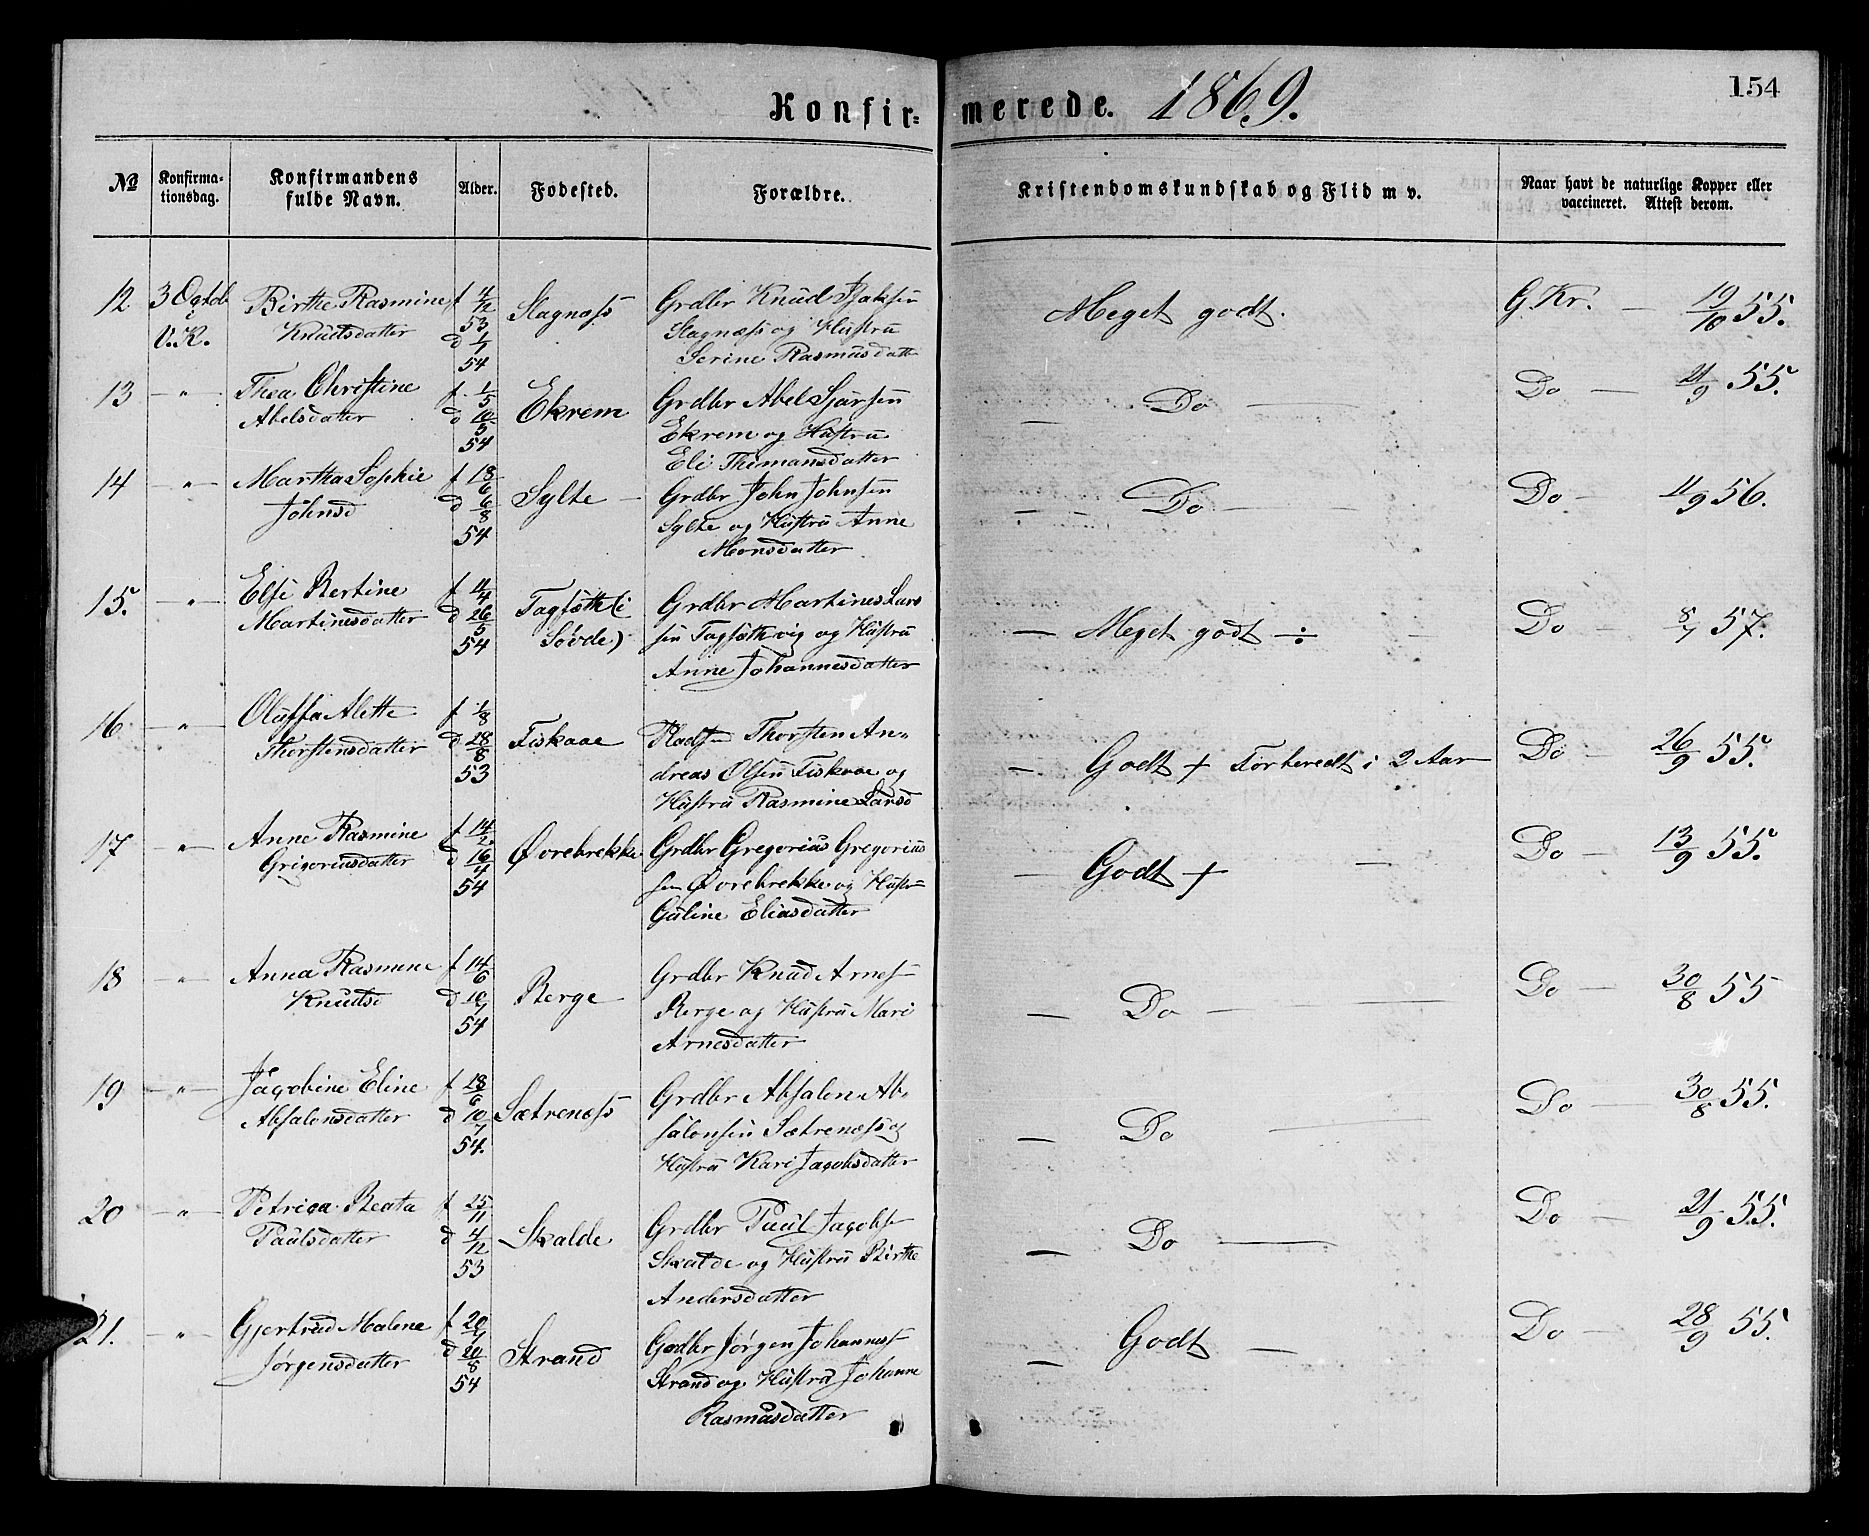 Konfir= merede. 1869.
154
No
Konfirma-
tionsdag.
Konfirmandens
fulde Navn.
Alder.
Fødested.
Forældre.
Kristendomskundskab og Flid m v.
Naar havt de naturlige Kopper eller
vaccineret. Attest derom.
12 3 Octob Birthe Rasmine f 4/12 Slagnæss Grdbr Knud Meget godt. G. Kr. — 19/10 55.
i V.K. Knudsdatter 53 d 1/1 54 Slagnæss og Hustru
Serine Rasmusdatt
13 — " — Thea Christine f 1/5 Ekrem Grdbr Abel — Do — Do — 21/9 55.
Abelsdatter d 10/5 54 Ekrem og Hustru
Eli Thimansdatter
14 — " — Martha Sophie f 18/6 Sylte — Grdbr John Johnsen — Do — Do — 11/9 56.
Johnsd d 6/8 54 Sylte og Hustru Anne
Monsdatter
15. — " — Elsi Bertine f 4/4 Fagsæth (i Grdbr Martines Lars — Meget godt ÷ — Do — 8/7 57.
Martinesdatter d 26/5 54 Søvde) sen Fagsæthvig og Hustru
Anne Johannesdatter
16 — " — Oluffa Alette f 1/8 Fiskaae Thorsten An= — Godt + Forberedt i 2 Aar — Do — 26/9 55.
Thorstensdatter d 28/8 53 dreas Olsen Fiskaae og
Hustru Rasmine Larsd
17 — " — Anne Rasmine f 14/2 Øvrebrekke Grdbr Gregorius Gregorius — Godt + — Do — 13/9 55.
Grigoriusdatter d 16/4 54 sen Øvrebrekke og Hustr
Guline Eliasdatter
18 — " — Anna Rasmine f 14/6 Berge Grdbr Knud Arnes — Do — Do — 30/8 55
Knudsd d 10/7 54 Berge og Hustru Mari
Arnesdatter
19 — " — Jacobine Eline f 18/6 Sætrenæss Grdbr Absalon Ab= — Do — Do — 30/8 55.
Absalonsdatter d 10/7 54. salonsen Sætrenæss og
Hustru Kari Jacobsdatter
20 — " — Petrica Beata f 25/11 Skalde Grdbr Paul Jacobs — Do — Do — 21/9 55.
Paulsdatter d 4/12 53 Skalde og Hustru Birthe
Andersdatter
21. — " — Gjertrud Malene f 20/7 Strand Grdbr Jørgen Johannes — Godt — Do — 28/9 55.
Jørgensdatter d 20/8 54 Strand og Hustru Johanne
Rasmusdatter